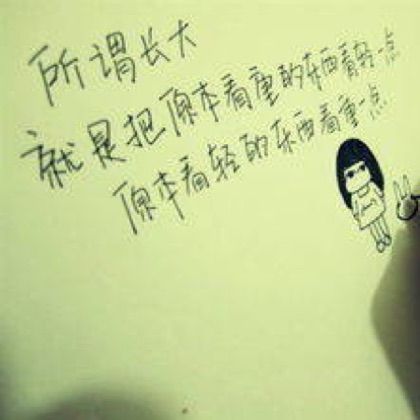 所谓长大
就是把原本看重的东西看轻一点
原本看轻的东西看重一点